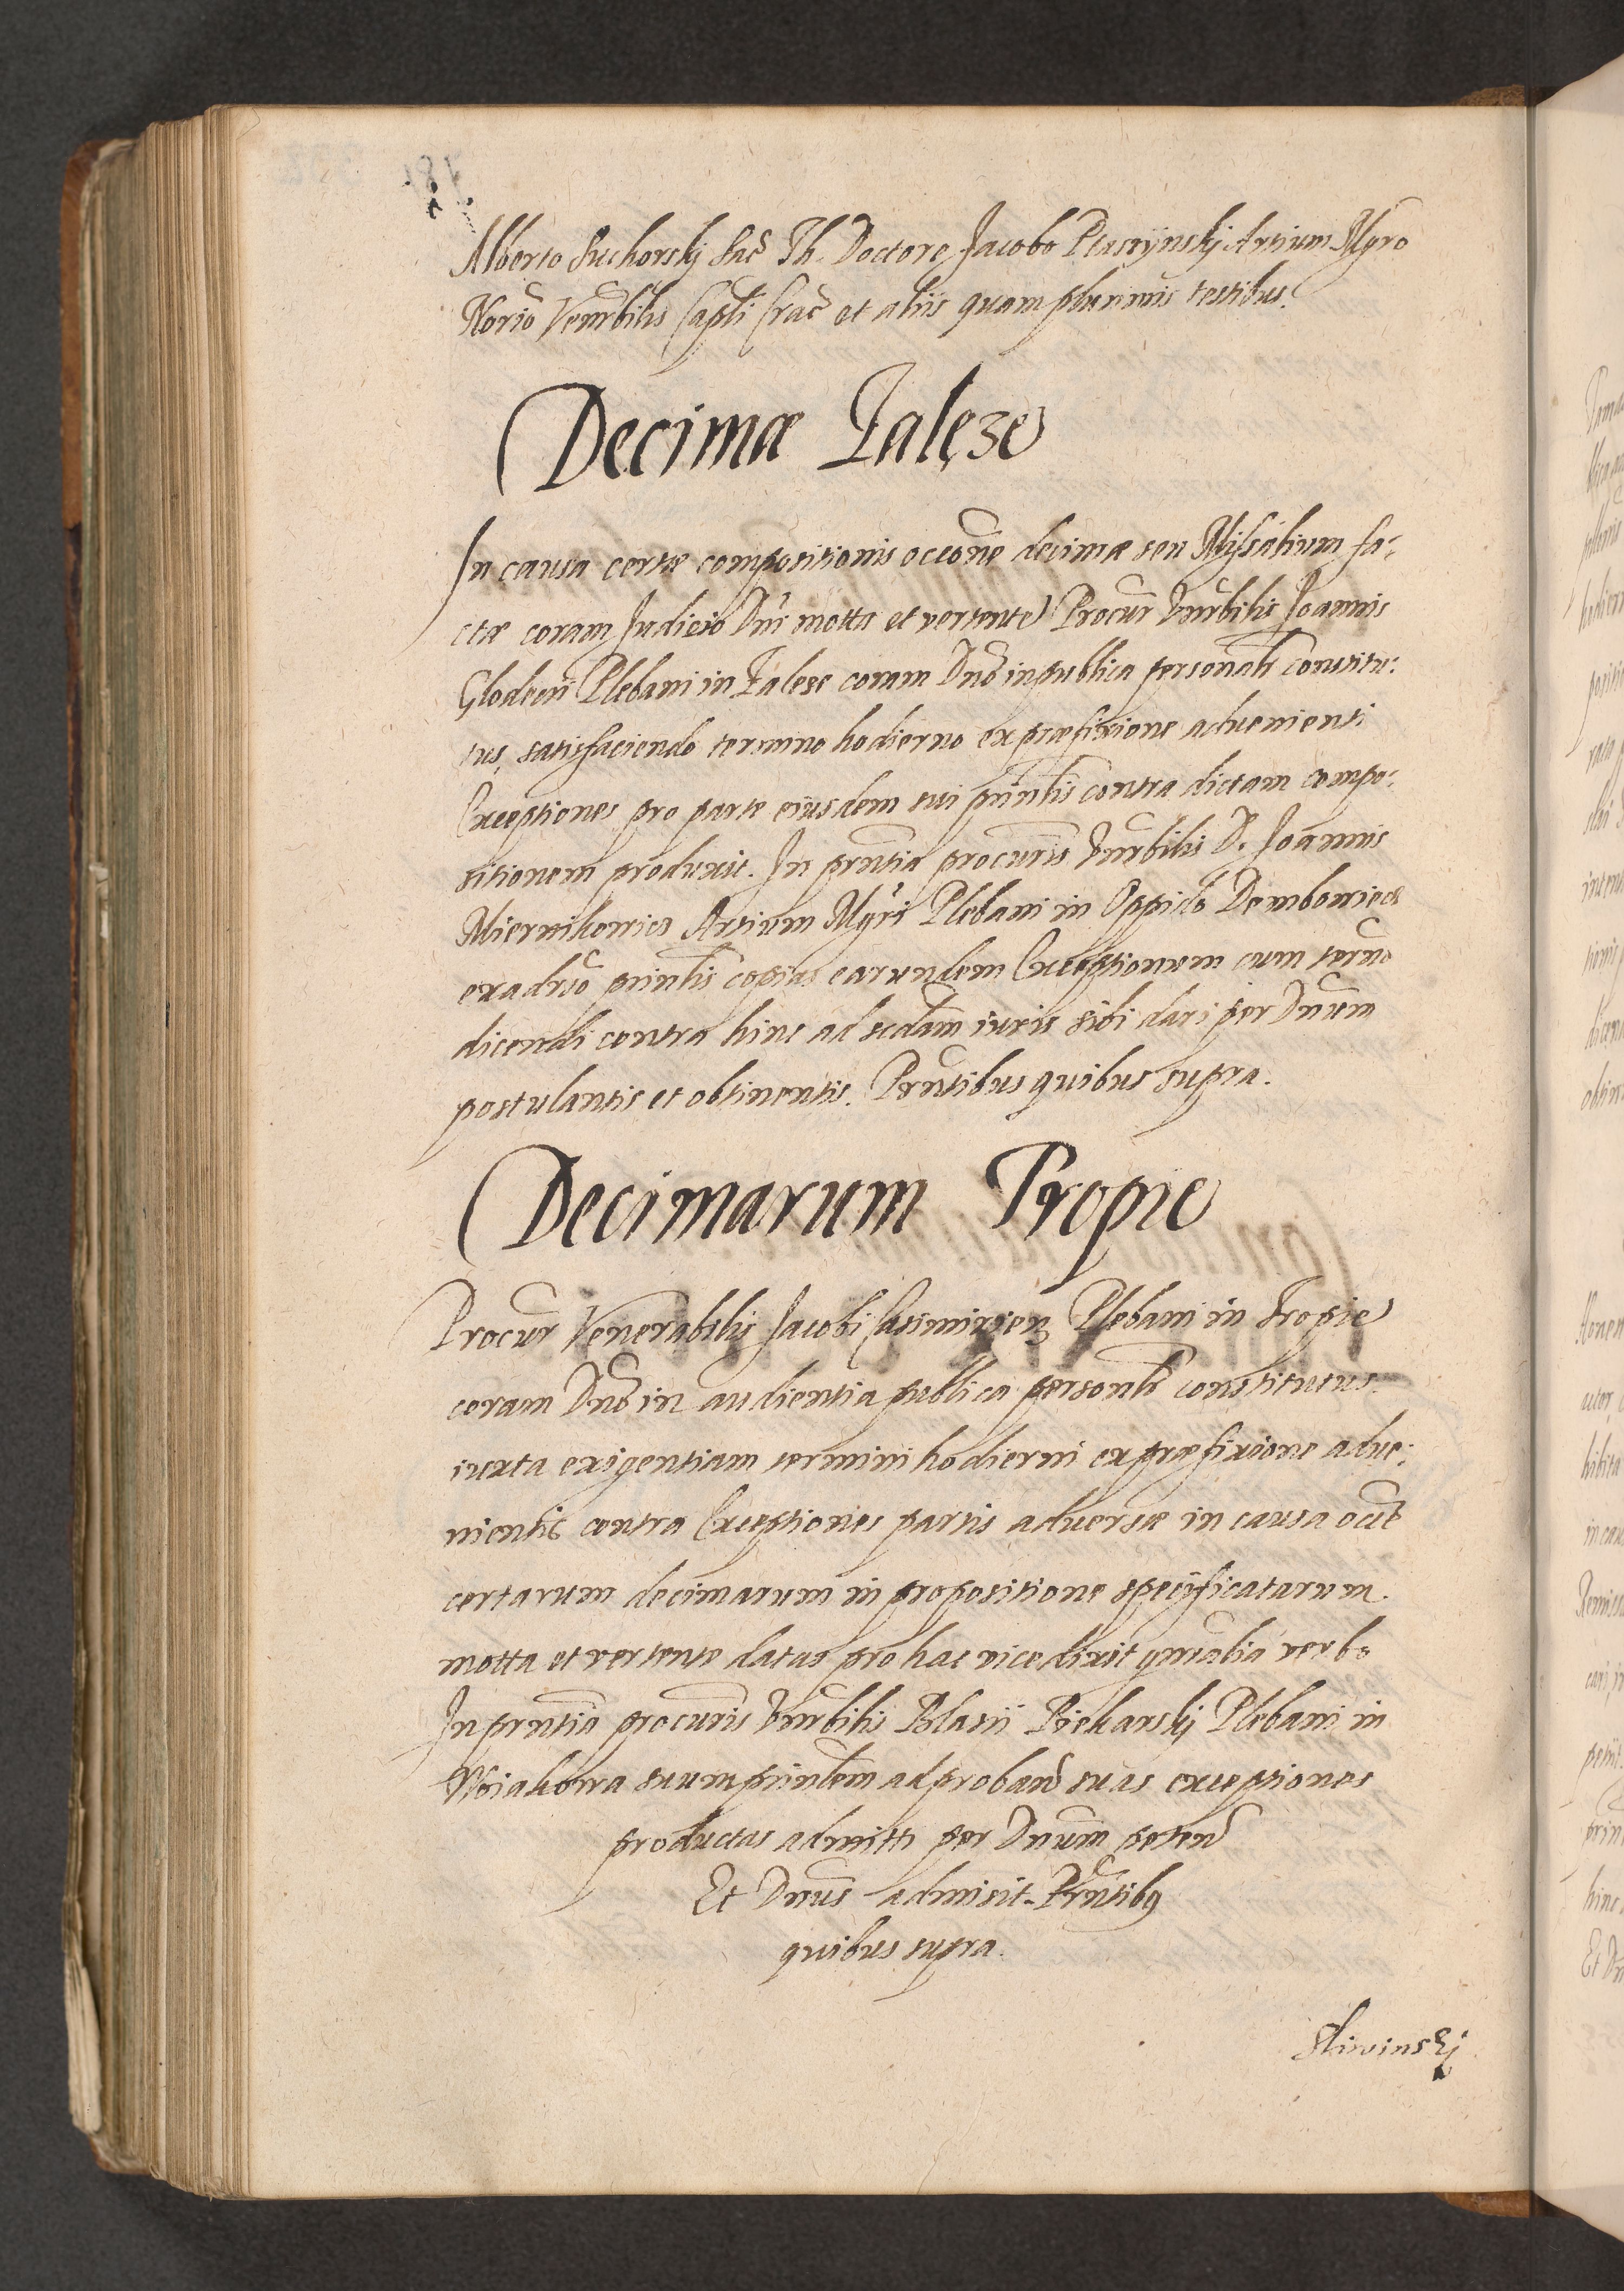 Alberto Suchorskj Sac̃ Th. Doctore, Jacobo Ptasziynskj Artium Mgro
Norio Venrbilis Capli Crac̃ et aliis quam plurimis testibus.
Decimæ Zalęze
In causa certæ compositionis occone decimæ seu Missalium fa:
ctæ coram Judicio Dni motta et vertente Procur Vnrbilis Joannis
Plebani in Zalęze coram Dno in publica personalr constitu:
tus, satisfaciendo termino hodierno ex præfixione advenienti
Exceptiones pro parte eiusdem sui prinlis contra dictam compo:
sitionem produxit. In prntia procuris Vnrbilis D. Joannis
Miernikowicz Artium Mgri Plebani in Oppido Dembowiecz
exadrso prinlis copias earundem Exceptionem cum termo
dicendi contra hinc ad scdam iuris sibi dari per Dnum
postulantis et obtinentis. Prntibus quibus supra.
Decimarum Tropie
Procur Venerabilis Jacobi Casimirien Plebani in Tropie
coram Dno in audientia publica personlr constitutus.
iuxta exigentiam termini hodierni ex præfixione adve:
nientis contra Exceptiones partis adversæ in causa occe
certarum decimarum in propositione specificatarum.
motta et vertente datas pro hac vice dixit gnralia verbo
In prntia procuris Vnrbilis Blasii Piekarskj Plebani in
Wiakowa suum prinlem ad proband suas exceptiones
productas admitti per Dnum peten
Et Dnus admisit. Prntibq
quibus supra.
Sliwinskj